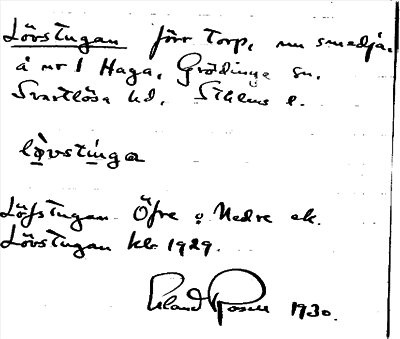 Lövstugan förr torp, nu smedja.
å nr 1 Haga, Grödinge sn.
Svartlösa hd, Sthlms l.
lǫ̀vstínga
Löfstugan Öfre o Nedre ek.
Lövstugan kb 1929.
Erland Rosell 1930.